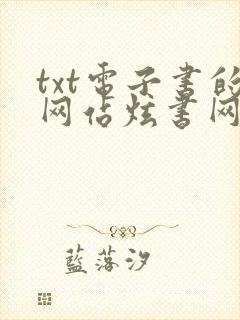 txt電子書的
网佔炫書网
藍落汐